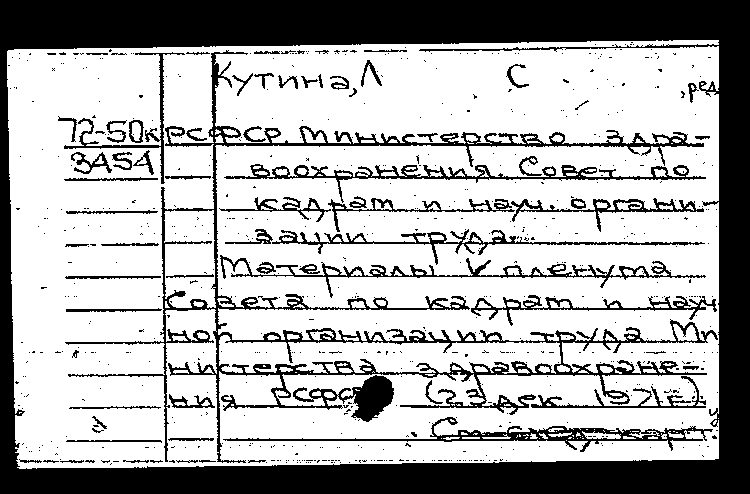 Кутина, Л С , ред.
72-50к РСФСР. Министерство здра-
3454 воохранения. Совет по
кадрам и науч. органи-
зации труда.
Материалы V пленума
Совета по кадрам и науч-
ной организации труда Ми-
нистерства здравоохране-
ния РСФСР (23 дек 1971 г.)
См. след. карт.